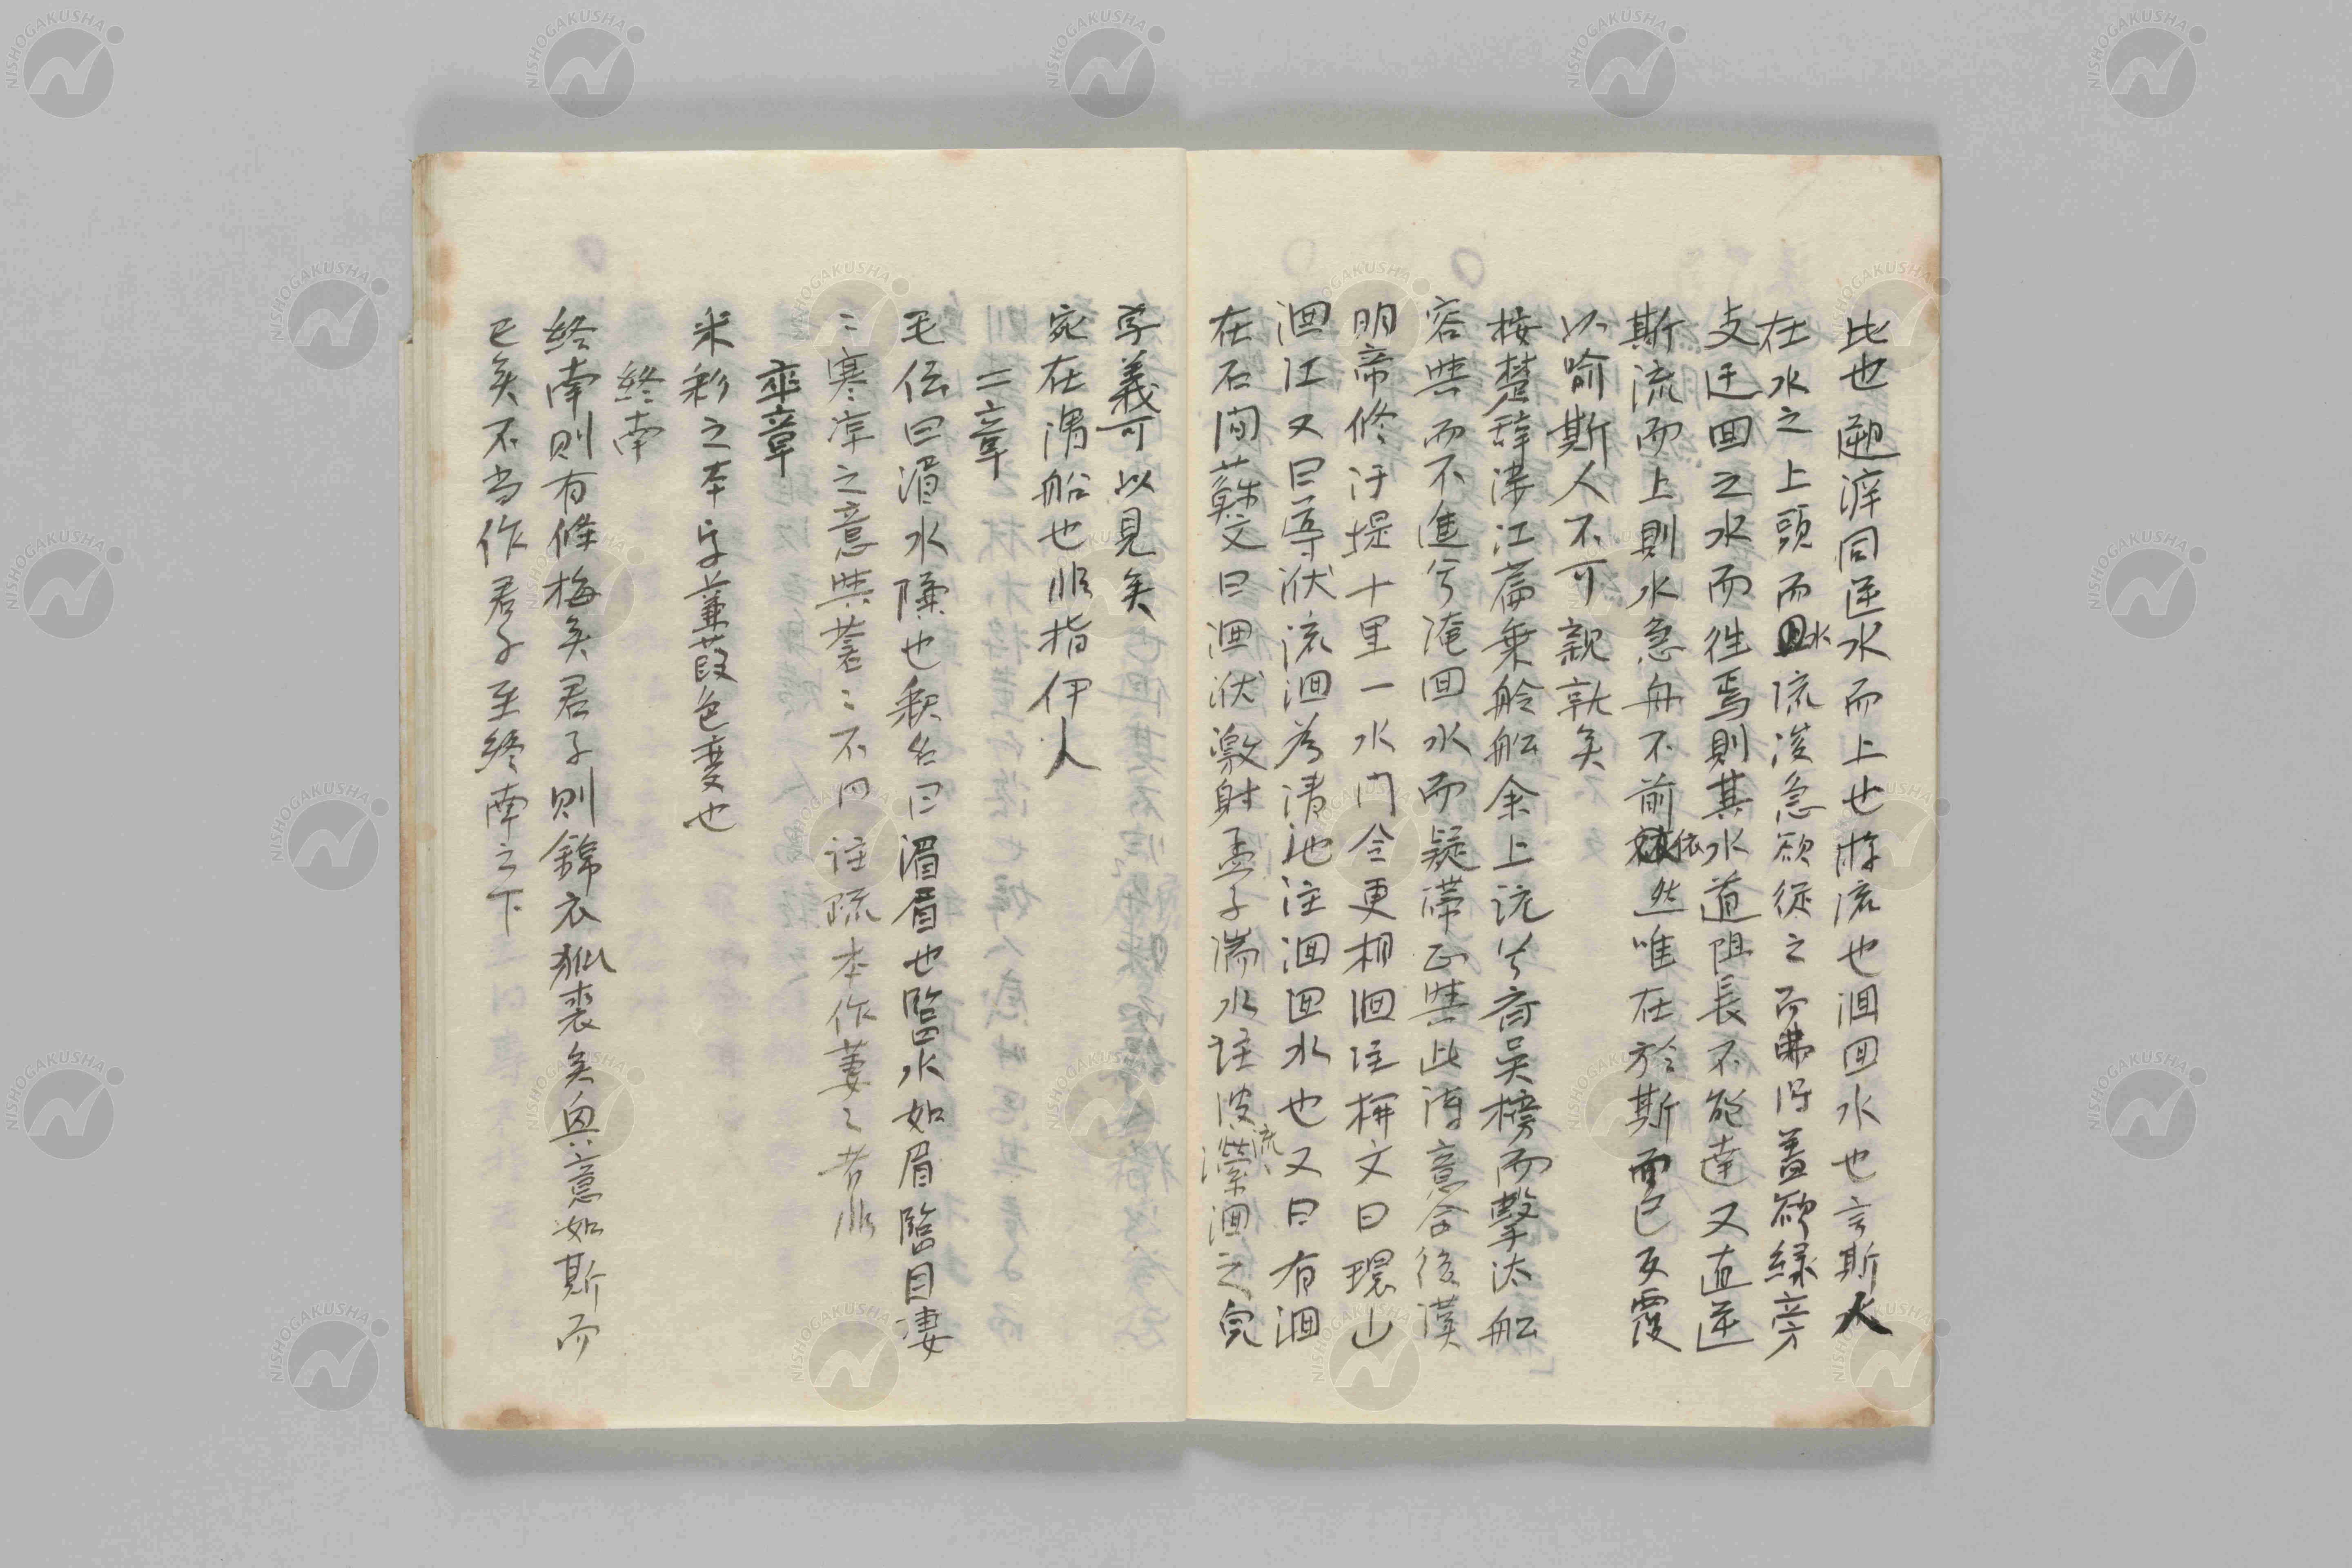 比也遡泝同逆水而上也游流也洄回水也言斯人
在水之上頭而水流浚急欲從之而弗得蓋欲緣旁
支迂回之水而徃焉則其水道阻長不能達又直逆
斯流而上則水急舟不前依然唯在於斯而已反覆
以喻斯人不可親就矣
按楚辞渉江篇乗舲舩余上沅兮齊吴榜而擊汰舩
容與而不進兮淹回水而疑滯正與此詩意合後漢
明帝修汴堤十里一水门令更相洄注栟文曰環山
洄江又曰㝵洑流洄為清池注洄回水也又曰有洄
在石间蘇文曰洄洑激射孟子湍水註波流瀠洄之皃
字義可以見矣
宛在溤船也非指伊人
二章
毛伝曰湄水隒也釈名曰湄眉也臨水如眉臨目凄
〻寒凉之意與蒼〻不同註疏本作萋〻者非
卒章
米彩之本字蒹葭色变也
終南
終南則有條梅矣君子則錦衣狐裘矣興意如斯而
已矣不当作君子至終南之下